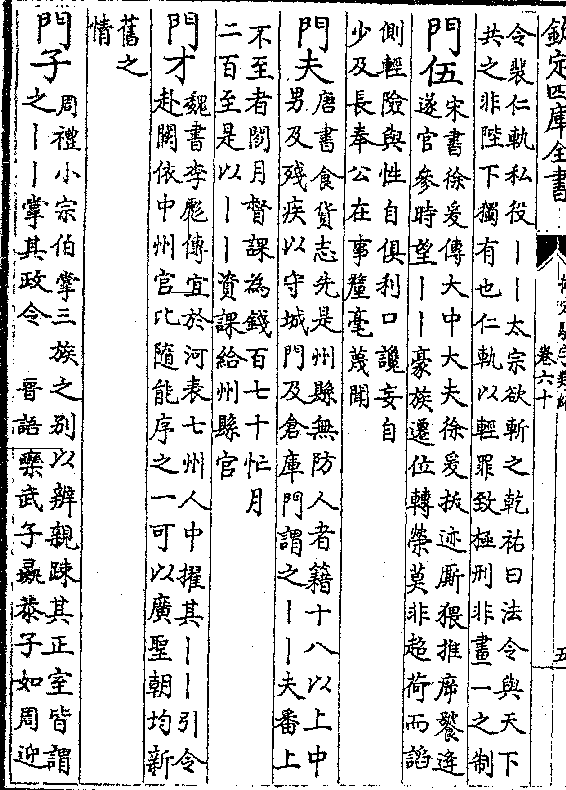 欽定四庫全書
卷六十
五
令裴仁軌私役丨丨太宗欲斬之乾祐曰法令與天下
共之非陛下獨有也仁軌以輕罪致極刑非畫一之制
門伍
宋書徐爰傳大中大夫徐爰拔迹厮猥推席饕逢
遂官參時望丨丨豪族遷位轉榮莫非超荷而諂
側輕險與性自俱利口讒妄自
少及長奉公在事釐毫蔑聞
門夫
唐書食貨志先是州縣無防人者籍十八以上中
男及殘疾以守城門及倉庫門謂之丨丨夫番上
不至者閏月督課為錢百七十忙月
二百至是以丨丨資課給州縣官
門才
魏書李彪傳宜於河表七州人中擢其丨丨引令
赴闕依中州官比隨能序之一可以廣聖朝均新
舊之
情
門子
周禮小宗伯掌三族之別以辨親疎其正室皆謂
之丨丨掌其政令　晉語欒武子彘恭子如周迎